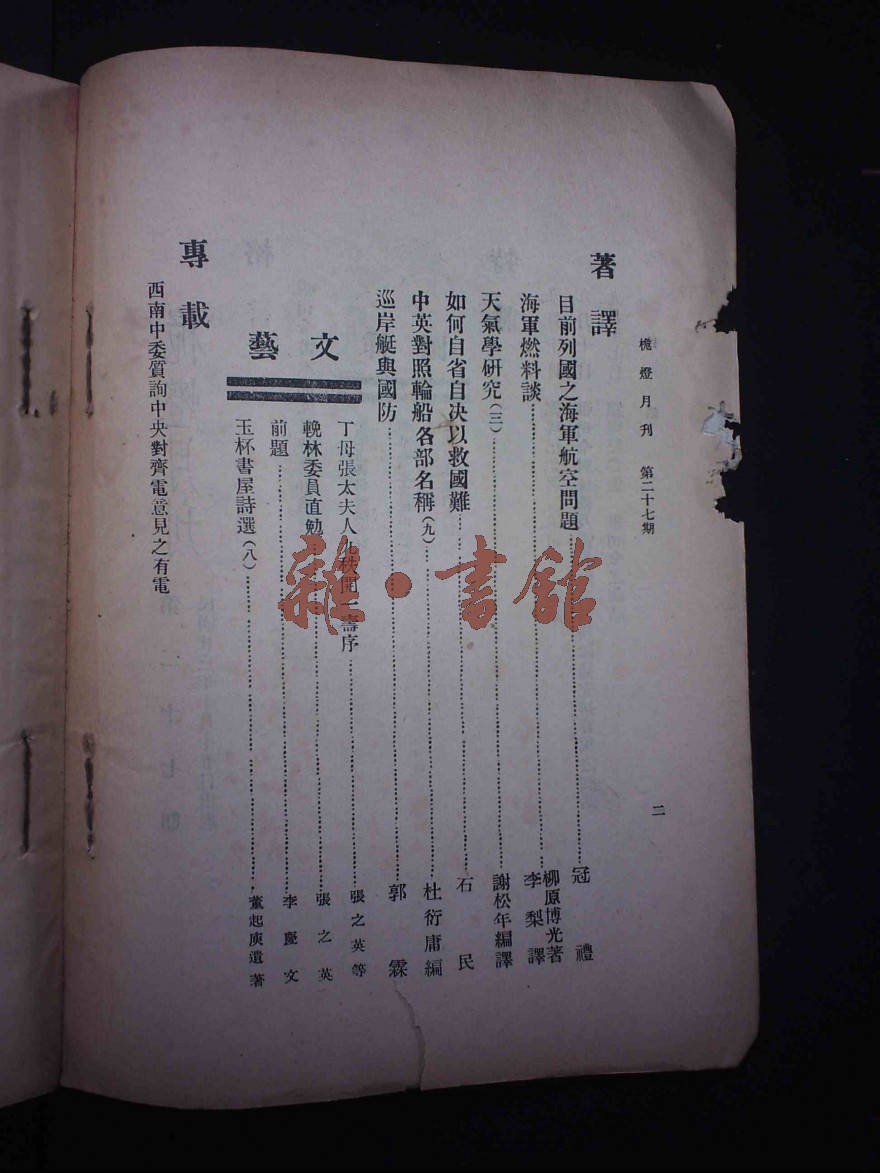 桅燈月刊 第二十七期
二
著譯
目前列國之海軍航空問題 冠禮
海軍燃料談 柳原博光著 李梨譯
天氣學研究(三) 謝松年編譯
如何自省自决以救國難 石民
中英對照輪船各部名稱(九) 杜衍庸編
巡岸艇與國防 郭霖
文藝
丁母張太夫人九秩開一壽序 張之英等
輓林委員直勉 張之英
前題 李慶文
玉杯書屋詩選(八) 董起庾遺著
專載
西南中委質詢中央對齊電意見之有電
雜·書館